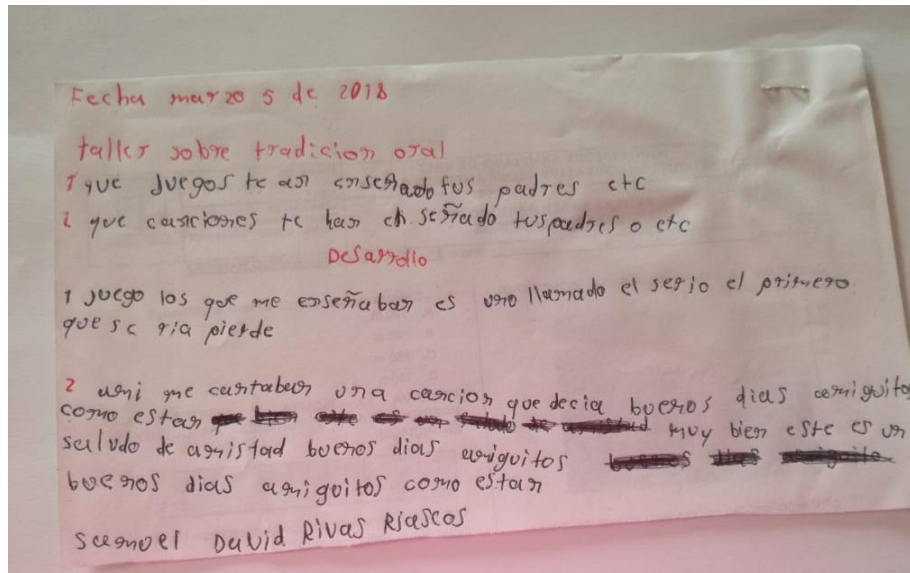 Fecha marzo 5 de 2018
taller sobre tradicion oral
1 que juegos te an enseñado tus padres etc
2 que canciones te han enseñado tus padres o etc
Desarrollo
1 juego los que me enseñaban es uno llamado el serio el primero
que se ria pierde
2 ami me cantaban una cancion que decia buenos dias amiguitos
como estan muy bien este es un
saludo de amistad buenos dias amiguitos
buenos dias amiguitos como estan
Samuel David Rivas Riascos